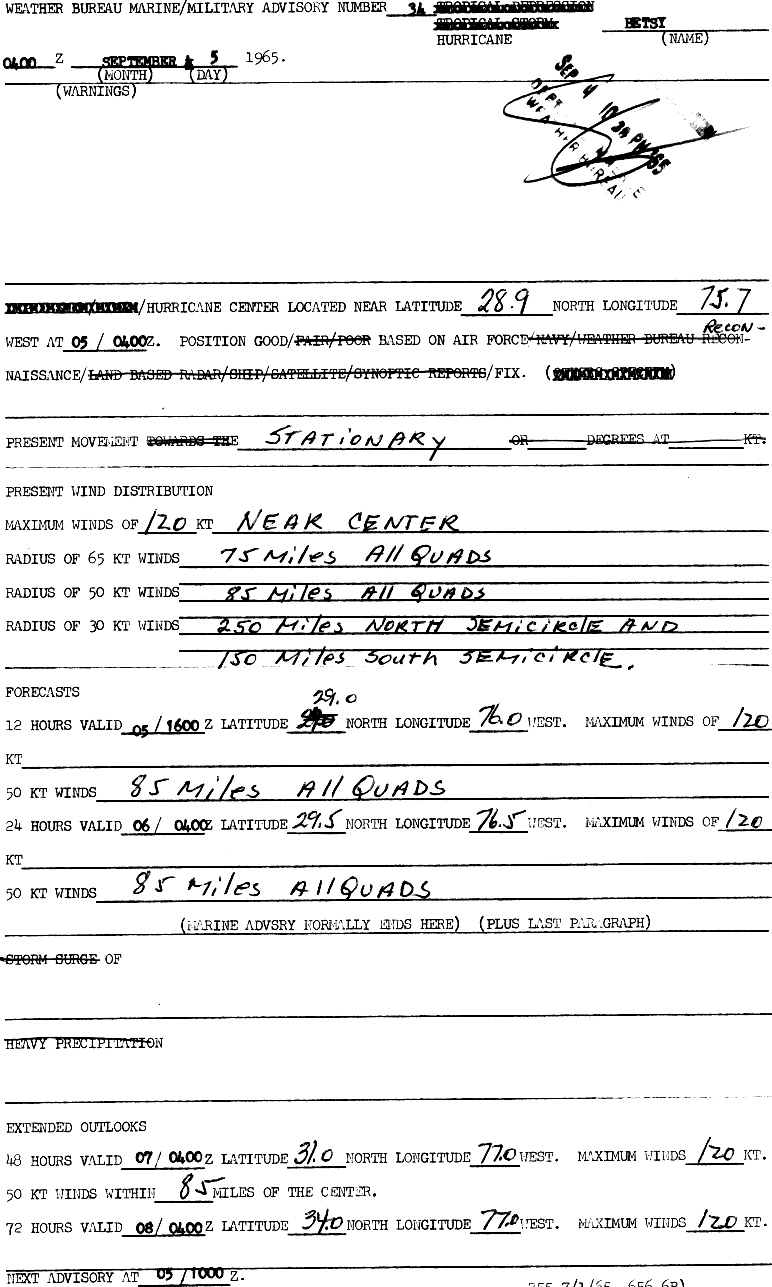 WEATHER BUREAU MARINE/MILITARY ADVISORY NUMBER 34 TROPICAL DEPRESSION
TROPICAL STORM BETSY
HURRICANE (NAME)
0400 Z SEPTEMBER 5 1965.
(MONTH) (DAY)
(WARNINGS)
SEP 4 10 39 PM '65
WEATHER BUREAU
/HURRICANE CENTER LOCATED NEAR LATITUDE 28.9 NORTH LONGITUDE 75.7
RECON-
WEST AT 05 / 0400Z. POSITION GOOD/FAIR/POOR BASED ON AIR FORCE/NAVY/WEATHER BUREAU RECON-
NAISSANCE/LAND BASED RADAR/SHIP/SATELLITE/SYNOPTIC REPORTS/FIX.
PRESENT MOVEMENT TOWARDS THE STATIONARY OR DEGREES AT KT.
PRESENT WIND DISTRIBUTION
MAXIMUM WINDS OF 120 KT NEAR CENTER
RADIUS OF 65 KT WINDS 75 Miles All QUADS
RADIUS OF 50 KT WINDS 85 Miles All QUADS
RADIUS OF 30 KT WINDS 250 Miles NORTH SEMICIRCLE AND
150 Miles South SEMICIRCLE.
FORECASTS
29.0
12 HOURS VALID 05/1600 Z LATITUDE NORTH LONGITUDE 76.0 WEST. MAXIMUM WINDS OF 120
KT
50 KT WINDS 85 Miles All QUADS
24 HOURS VALID 06/ 0400Z LATITUDE 29.5 NORTH LONGITUDE 76.5 WEST. MAXIMUM WINDS OF 120
KT
50 KT WINDS 85 Miles All QUADS
(MARINE ADVSRY NORMALLY ENDS HERE) (PLUS LAST PARAGRAPH)
STORM SURGE OF
HEAVY PRECIPITATION
EXTENDED OUTLOOKS
48 HOURS VALID 07/ 0400Z LATITUDE 31.0 NORTH LONGITUDE 77.0 WEST. MAXIMUM WINDS 120 KT.
50 KT WINDS WITHIN 85 MILES OF THE CENTER.
72 HOURS VALID 08/0400Z LATITUDE 34.0 NORTH LONGITUDE 77.0 WEST. MAXIMUM WINDS 120 KT.
NEXT ADVISORY AT 05 /1000 Z.